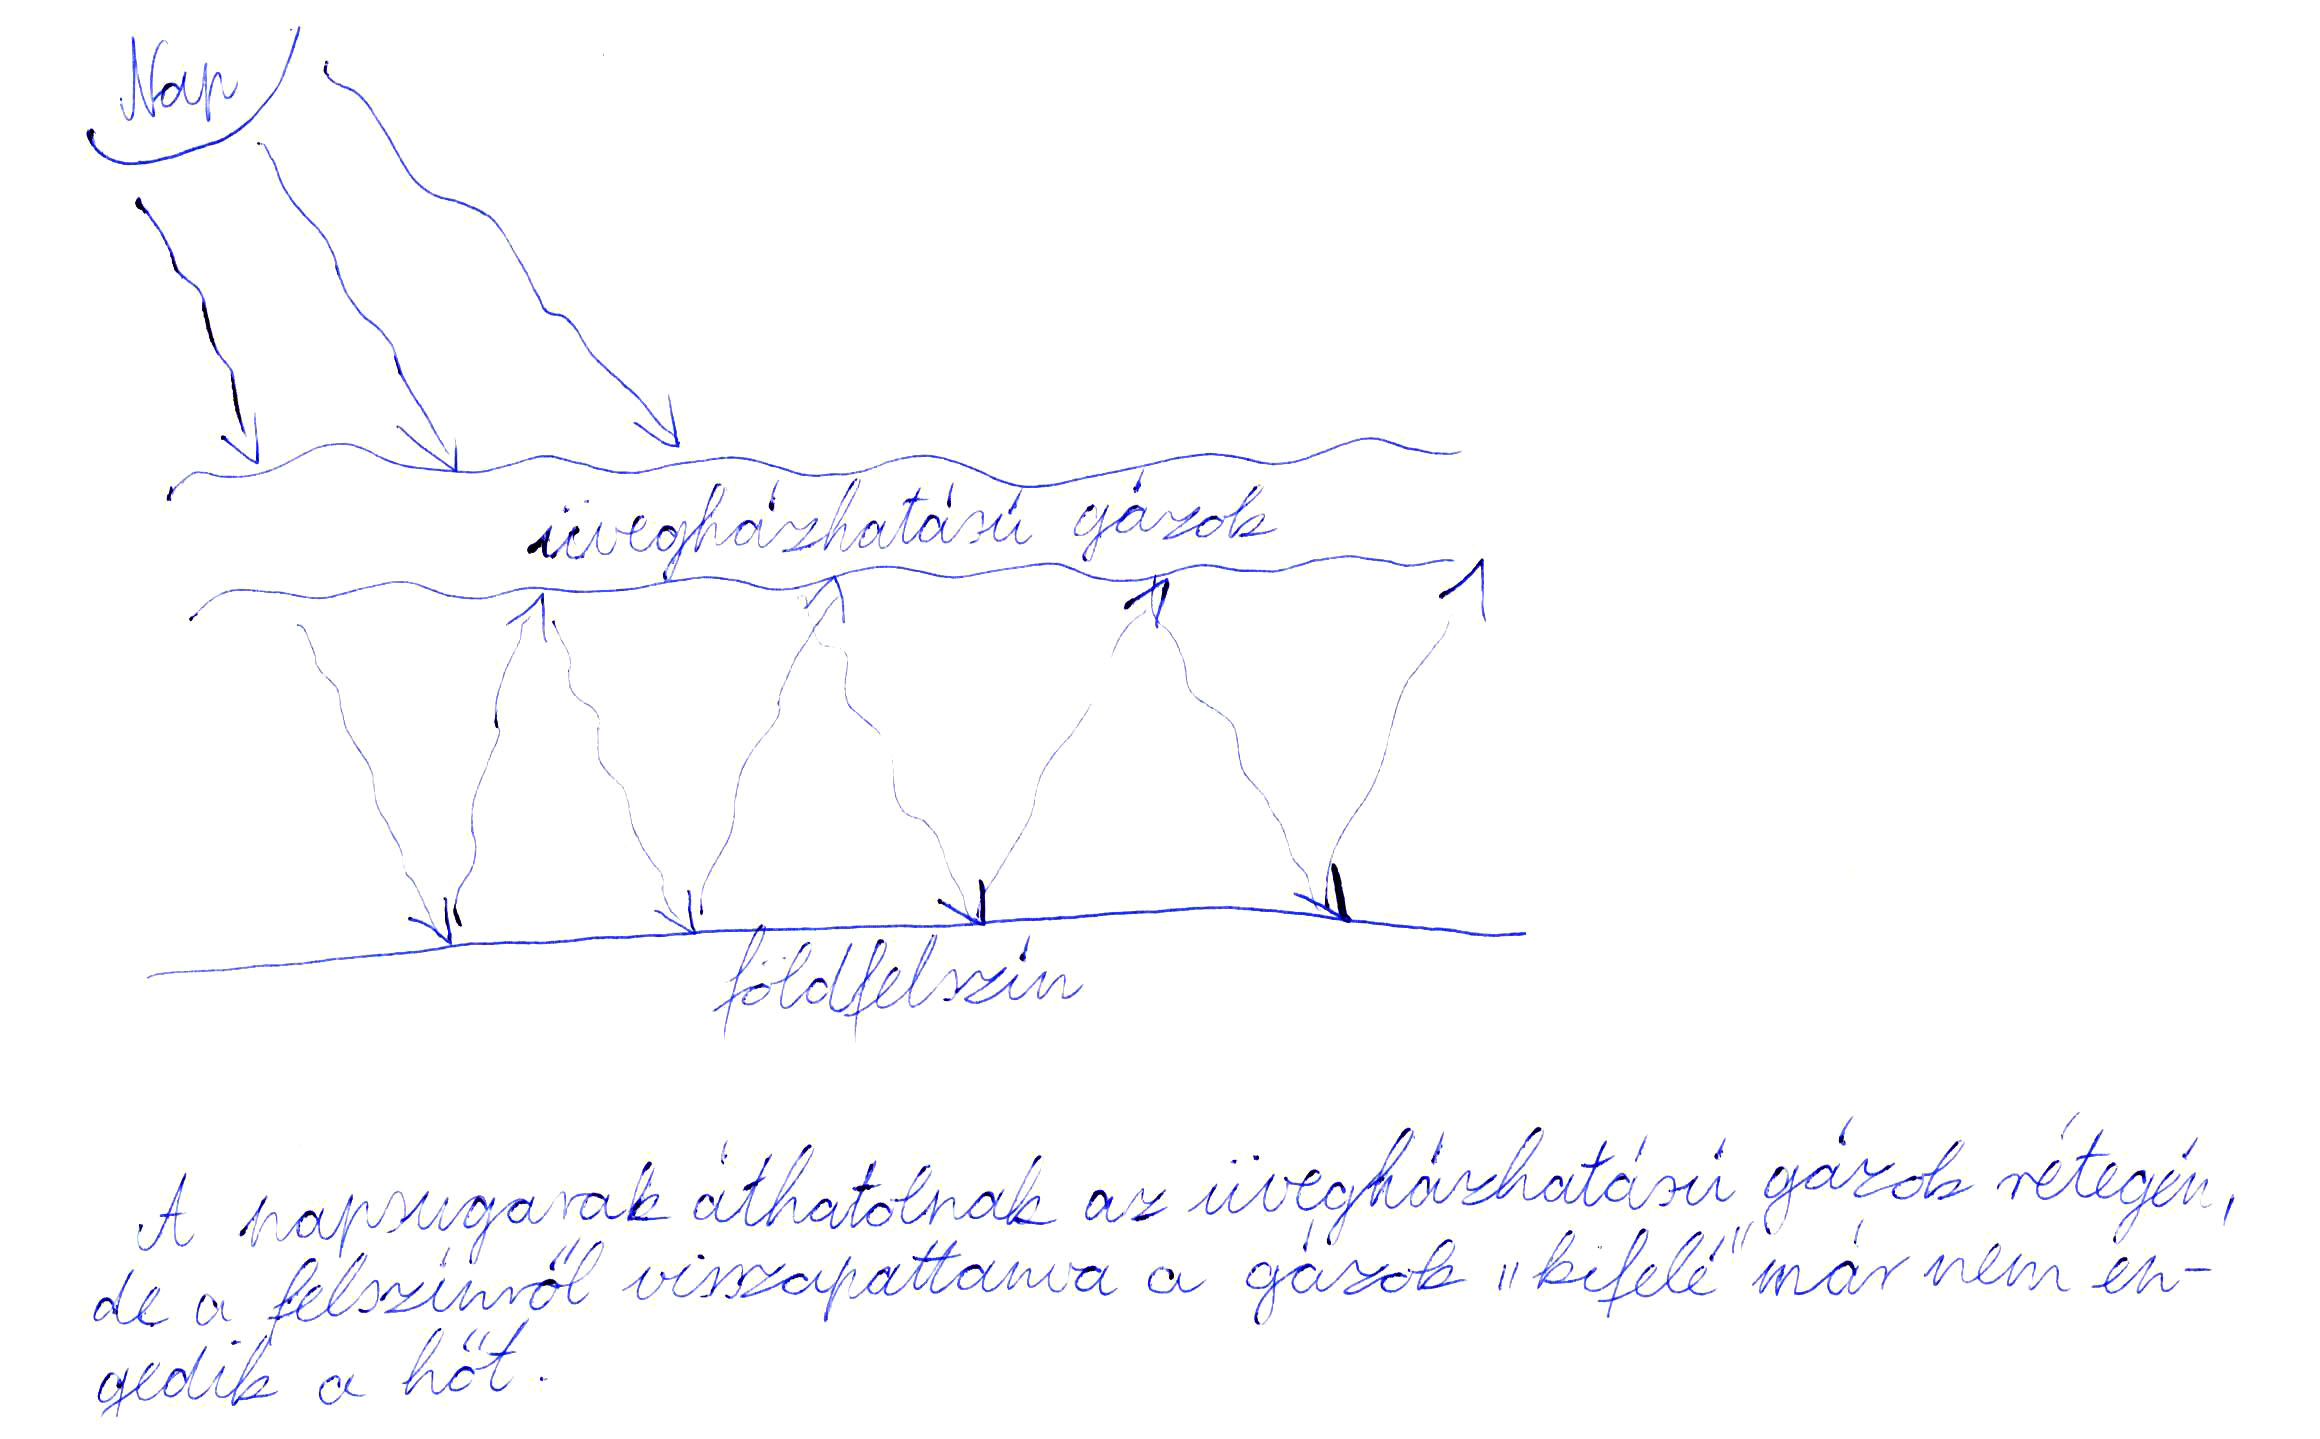 Nap
üvegházhatású gázok
földfelszín
A napsugarak áthatolnak az üvegházhatású gázok rétegén,
de a felszínről visszapattanva a gázok „kifelé" már nem en-
gedik a hőt.